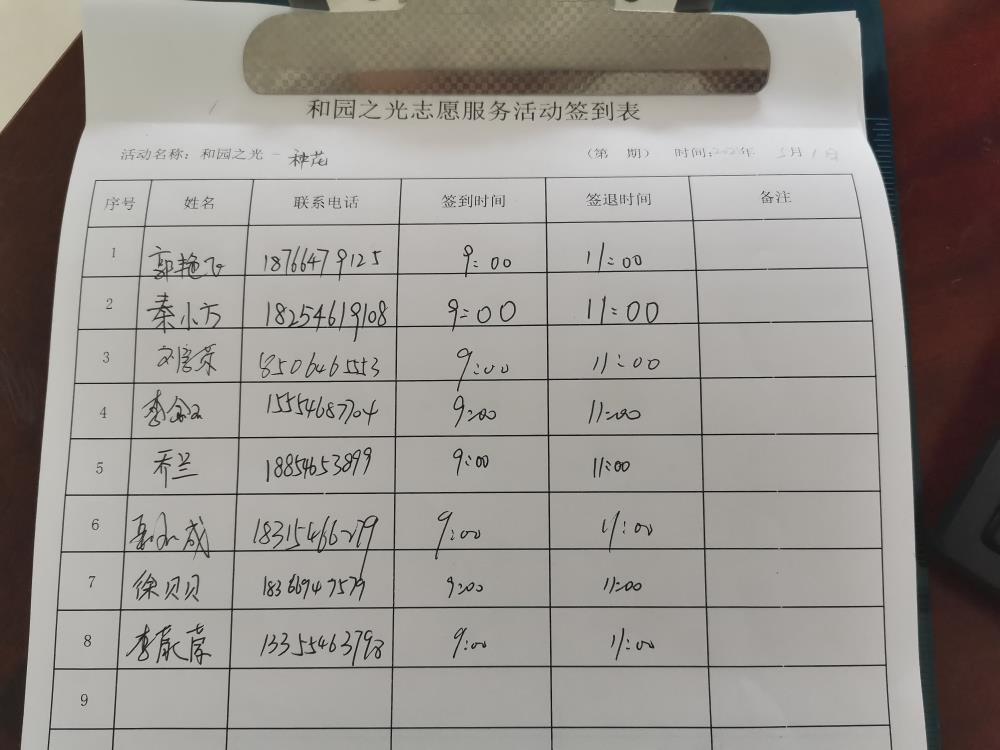 和园之光志愿服务活动签到表
活动名称：和园之光-种花 （第 期） 时间: 年 5月1日
序号 姓名 联系电话 签到时间 签退时间 备注
1 郭艳飞 18766479125 9:00 11:00
2 秦小方 18254619108 9:00 11:00
3 9:00 11:00
4 15554687704 9:00 11:00
5 乔兰 18854653899 9:00 11:00
6 18315466279 9:00 11:00
7 徐贝贝 18366947579 9:00 11:00
8 13355463798 9:00 11:00
9